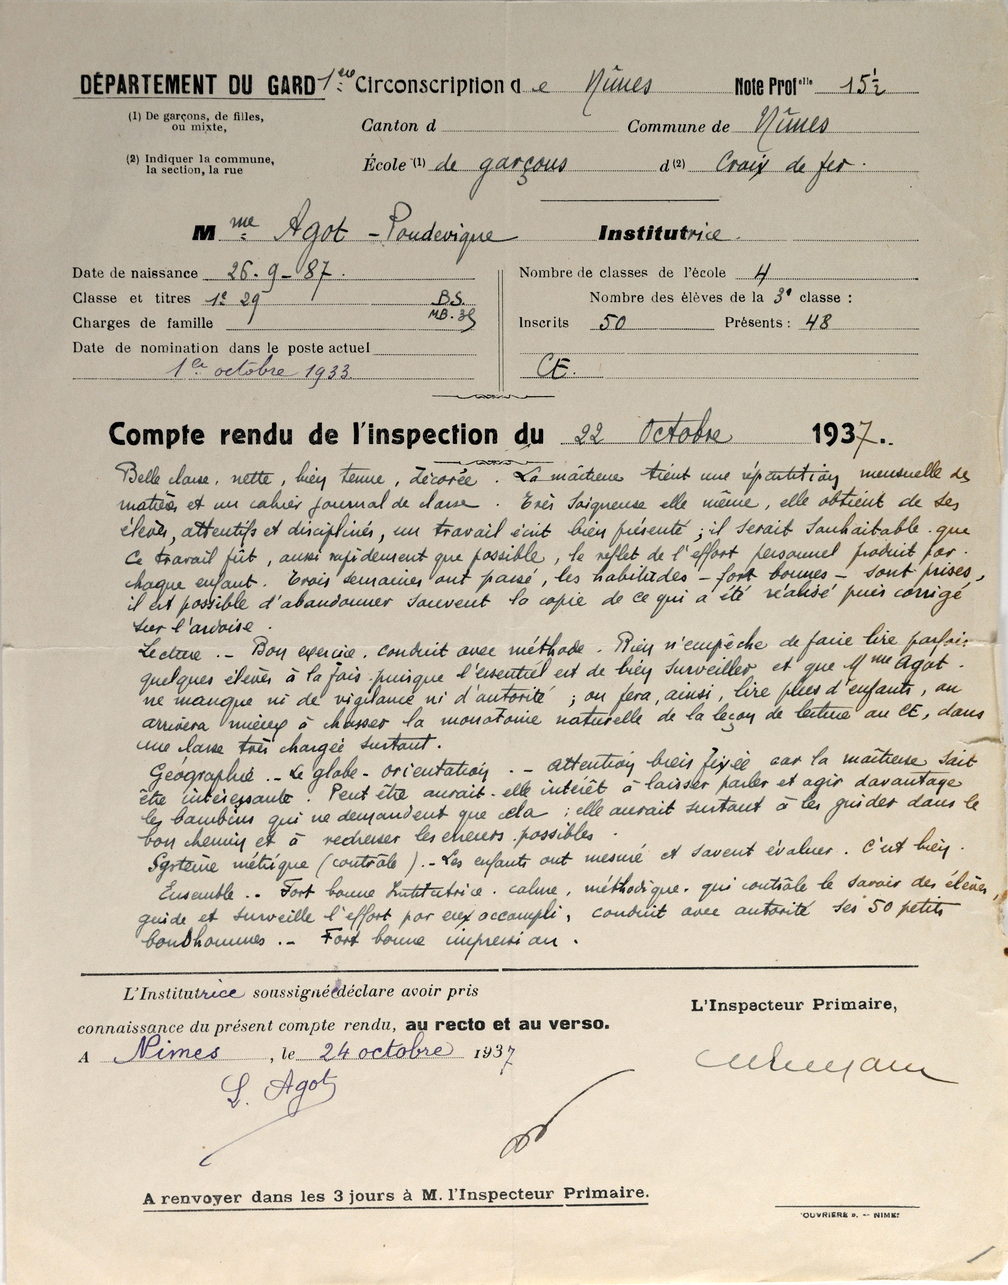 DÉPARTEMENT DU GARD 1ère Circonscription de Nîmes Note Prof elle 15½
(1) De garçons, de filles, ou mixte,
Canton d Commune de Nîmes
(2) Indiquer la commune, la section, la rue
École (1) de garçons d (2) Croix de fer.
Mme Agot - Poudevigne Institutrice.
Date de naissance 26-9-87. Nombre de classes de l'école 4
Classe et titres 1e 29 B.S. Nombre des élèves de la 3e classe :
Charges de famille MB. 35 Inscrits 50 Présents : 48
Date de nomination dans le poste actuel
1er octobre 1933. CE.
Compte rendu de l'inspection du 22 Octobre 1937.
Belle classe, nette, bien tenue, décorée. La maîtresse tient une répartition mensuelle des
matières et un cahier journal de classe. Très soigneuse elle même, elle obtient de ses
élèves, attentifs et disciplinés, un travail écrit bien présenté ; il serait souhaitable que
ce travail fût, aussi rapidement que possible, le reflet de l'effort personnel produit par
chaque enfant. Trois semaines ont passé, les habitudes - fort bonnes - sont prises,
il est possible d'abandonner souvent la copie de ce qui a été réalisé puis corrigé
sur l'ardoise.
Lecture .- Bon exercice, conduit avec méthode. Rien n'empêche de faire lire parfois
quelques élèves à la fois puisque l'essentiel est de bien surveiller et que Mme Agot
ne manque ni de vigilance ni d'autorité ; on fera, ainsi, lire plus d'enfants, on
arrivera mieux à chasser la monotonie naturelle de la leçon de lecture au CE, dans
une classe très chargée surtout.
Géographie .- Le globe - orientation .- Attention bien fixée car la maîtresse sait
être intéressante. Peut être aurait-elle intérêt à laisser parler et agir davantage
les bambins qui ne demandent que cela ; elle aurait surtout à les guider dans le
bon chemin et à redresser les erreurs possibles.
Système métrique (contrôle) .- Les enfants ont mesuré et savent évaluer. C'est bien.
Ensemble .- Fort bonne Institutrice, calme, méthodique, qui contrôle le savoir des élèves,
guide et surveille l'effort par eux accompli, conduit avec autorité ses 50 petits
bonshommes .- Fort bonne impression.
L'Institutrice soussignée déclare avoir pris
connaissance du présent compte rendu, au recto et au verso.
L'Inspecteur Primaire,
A Nîmes, le 24 octobre 1937
L. Agot
A renvoyer dans les 3 jours à M. l'Inspecteur Primaire.
"OUVRIÈRE". — NIMES